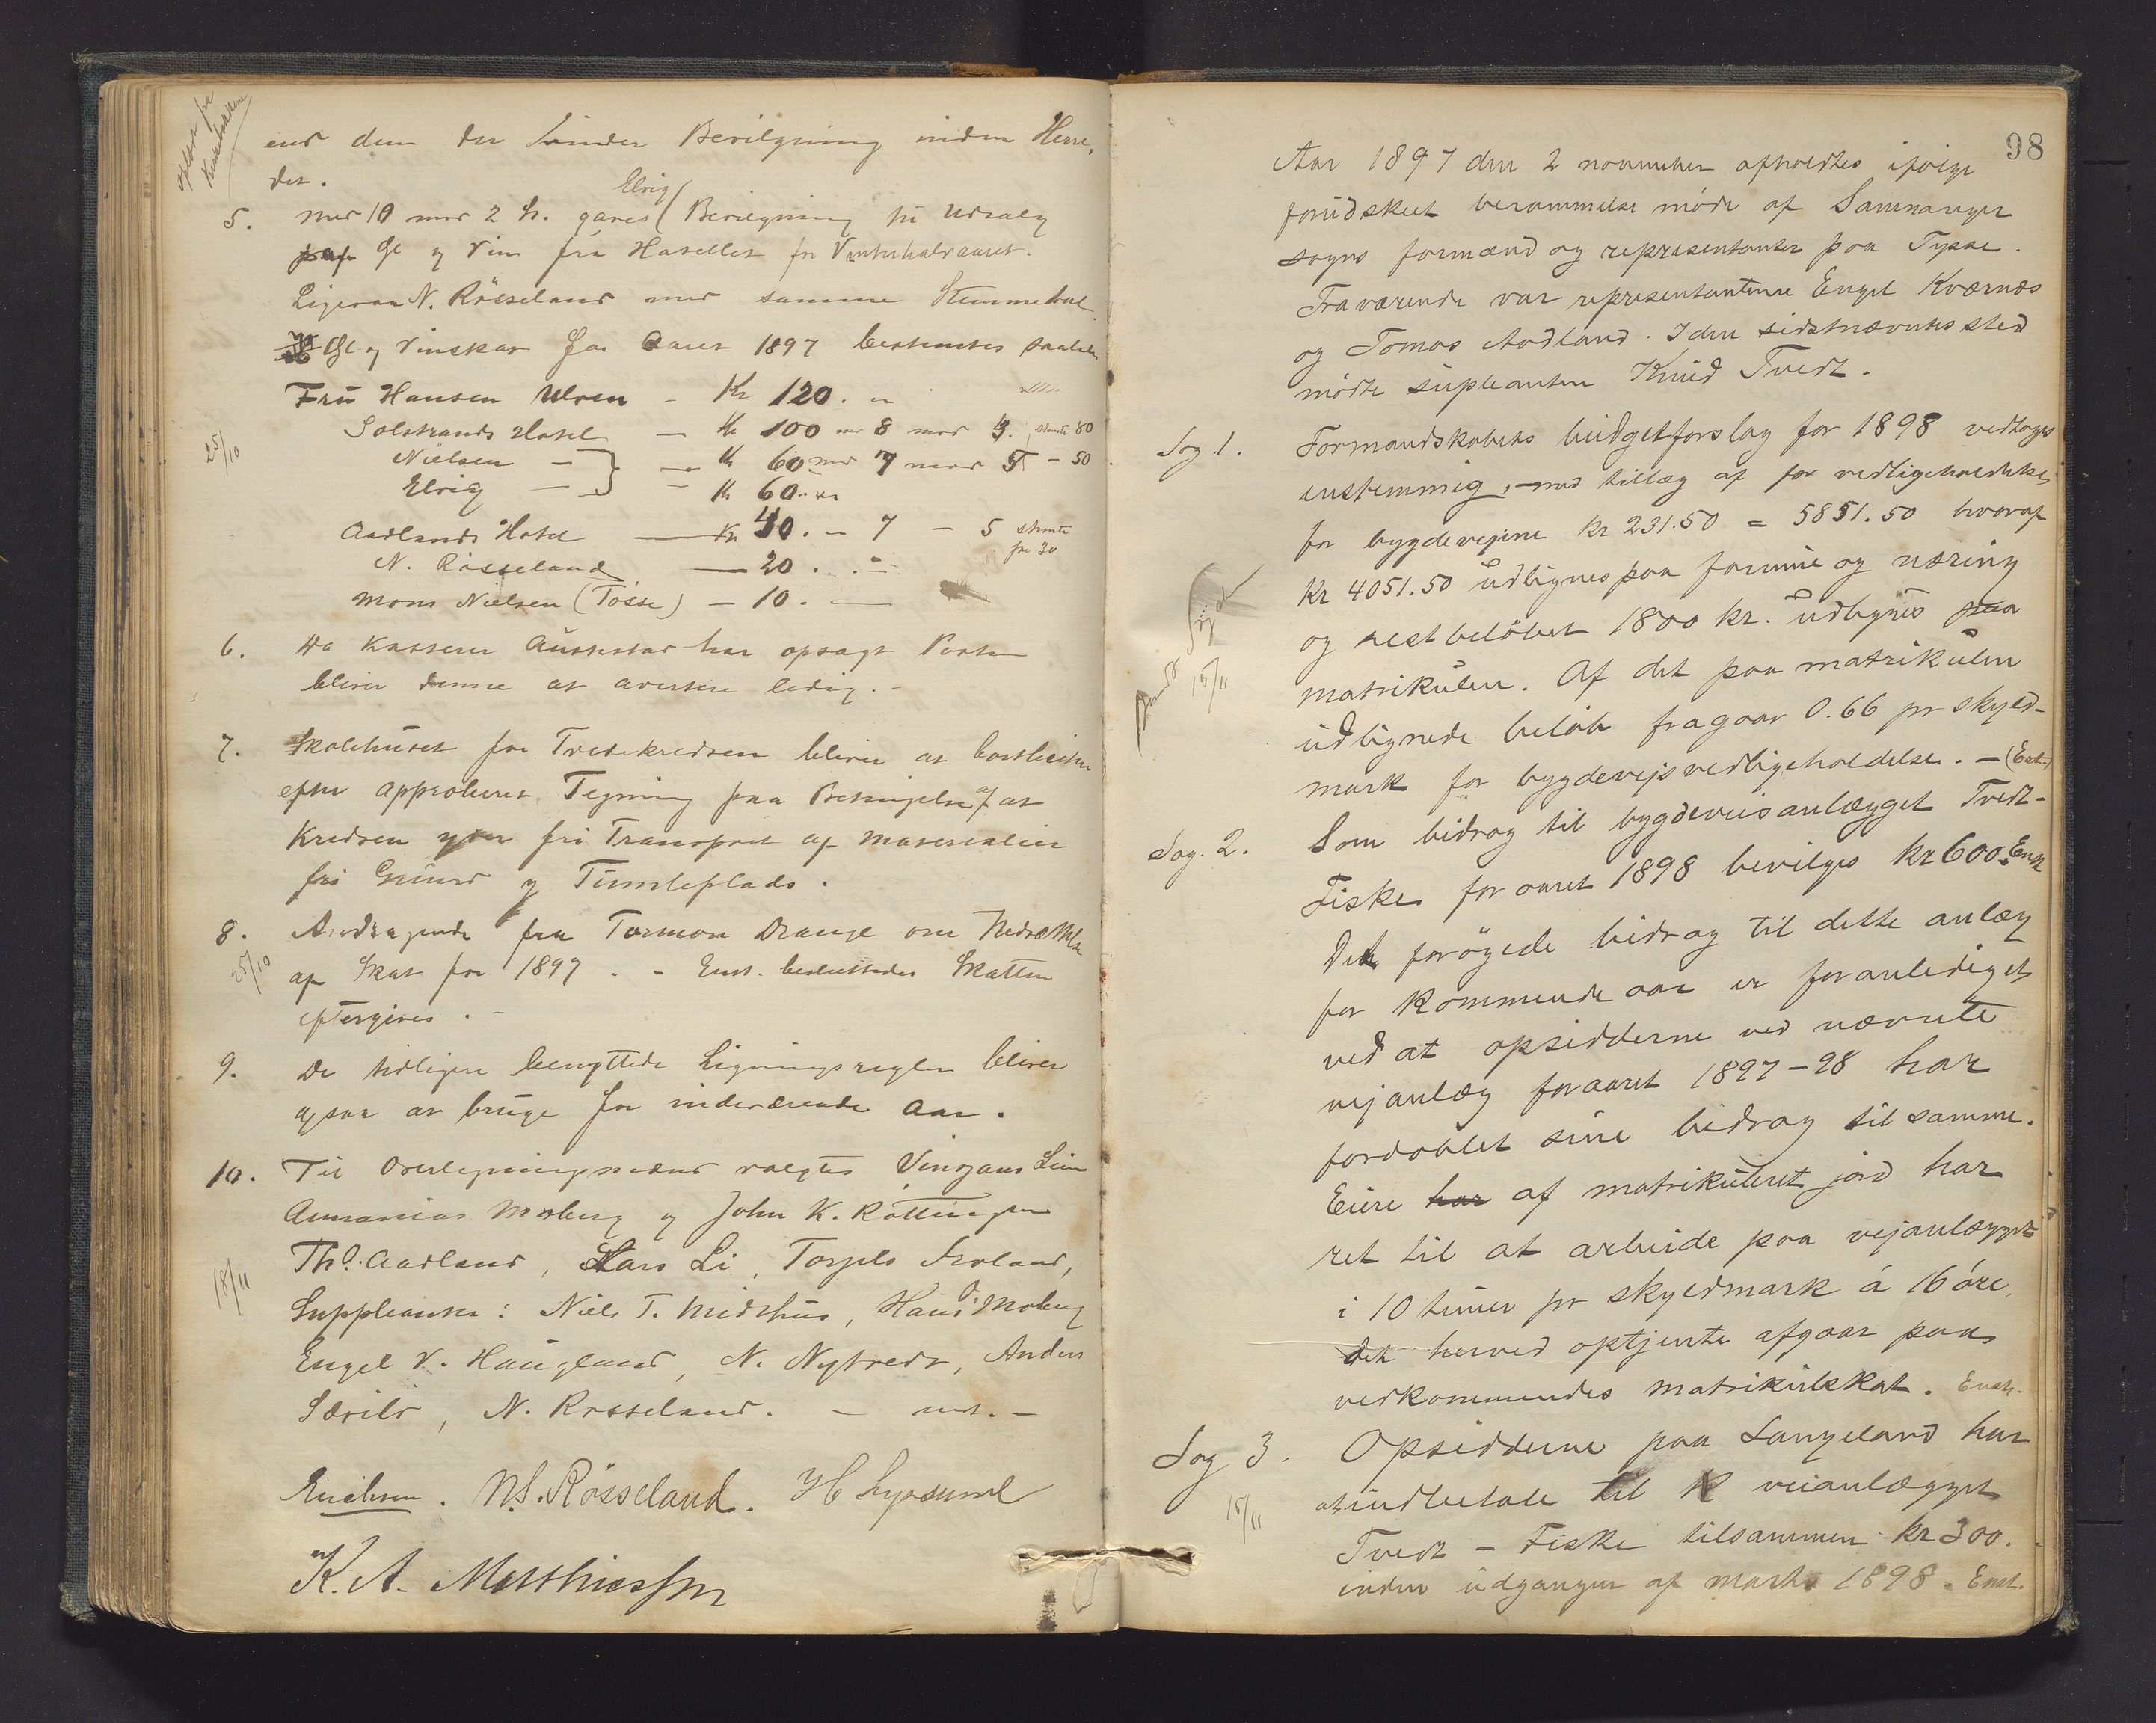 end dem der Bevilgning inden Herre,
det.
5. Med 10 mod 2 St. gaves Elvig Bevilgning til Udsalg
Øl og Vin fra Hotellet for Vinterhalvaaret.
Ligesaa N. Rösseland med samme Stemmetal
Øl og Vinskat for Aaret 1897 bestemtes saaledes
Fru Hansen Ulven - Kr 120. "
Solstrands Hotel - Kr 100 med 8 mod 4. stemte 80
25/10
Nielsen - Kr 60 med 7 mod 5 - 50
Elvig - Kr 60. "
Aadlands Hotel - Kr 40. - 7 - 5 stemte
for 30
N. Rösseland - 20. -
Mons Nielsen (Tösse) - 10. -
6. Da Kasserer har opsagt Posten
bliver denne at avertere ledig. -
7. Skolehuset for Tvedtekredsen bliver at bortlicitere
efter approberet Tegning paa Betingelse af at
Kredsen yder fri Transport af Materialier
fri Grund og Tumleplads.
8. Andragende fra Tormon Drange om Nedsættelse
25/10
af Skat for 1897. - Enst. besluttedes Skatten
eftergives. -
9. De tidligere benyttede Ligningsregler bliver
ogsaa at bruge for indeværende Aar.
10. Til Overligningsmænd valgtes Vingans Lien
Annanias Moberg og John K. Röttingen
Ths. Aadland, Lars Li, Torgils Frøland,
18/11
Suppleanter: Niels T. Midthus, Hans J. Moberg
Engel V. Haugland, N. Nytvedt, Anders
Sævild, N. Rosseland. -
Erichsen. N.S. Rösseland. H Lyssund
K. A. Matthiessen
98
Aar 1897 den 2 november afholdtes ifølge
forudskeet berammelse møde af Samnanger
sogns formænd og repræsentanter paa Tysse.
Fraværende var repræsentanterne Engel Kværnæs
og Tomas Aadland. I den sidstnævntes sted
mödte supleanten Knud Tvedt.
Sag 1. Formandskabets budgetforslag for 1898 vedtoges
enstemmig, - med tillæg af for vedligeholdelse
for bygdeveiene kr 231.50 = 5851.50 hvoraf
kr 4051.50 udlignes paa formue og næring
og restbelöbet 1800 kr. udlignes paa
15/11
matrikulen. Af det paa matrikulen
udlignede belöb fragaar 0.66 pr skyld-
mark for bygdevejsvedligeholdelse. - (Enst.)
Sag. 2. Som bidrag til bygdeveisanlægget Tvedt-
Fiske for aaret 1898 bevilges kr 600. Enst
Det forögede bidrag til dette anlæg
for kommende aar er foranlediget
ved at opsidderne ved nævnte
vejanlæg for aaret 1897-98 har
fordoblet sine bidrag til samme.
Eiere har af matrikuleret jord har
ret til at arbeide paa vejanlægget
i 10 timer pr skyldmark á 16 öre,
det herved optjente afgaar paa
vedkommendes matrikulskat. Enst.
Sag 3. Opsidderne paa Langeland har
at indbetale til veianlægget
15/11
Tvedt - Fiske tilsammen kr 300.
inden udgangen af marts 1898. Enst.